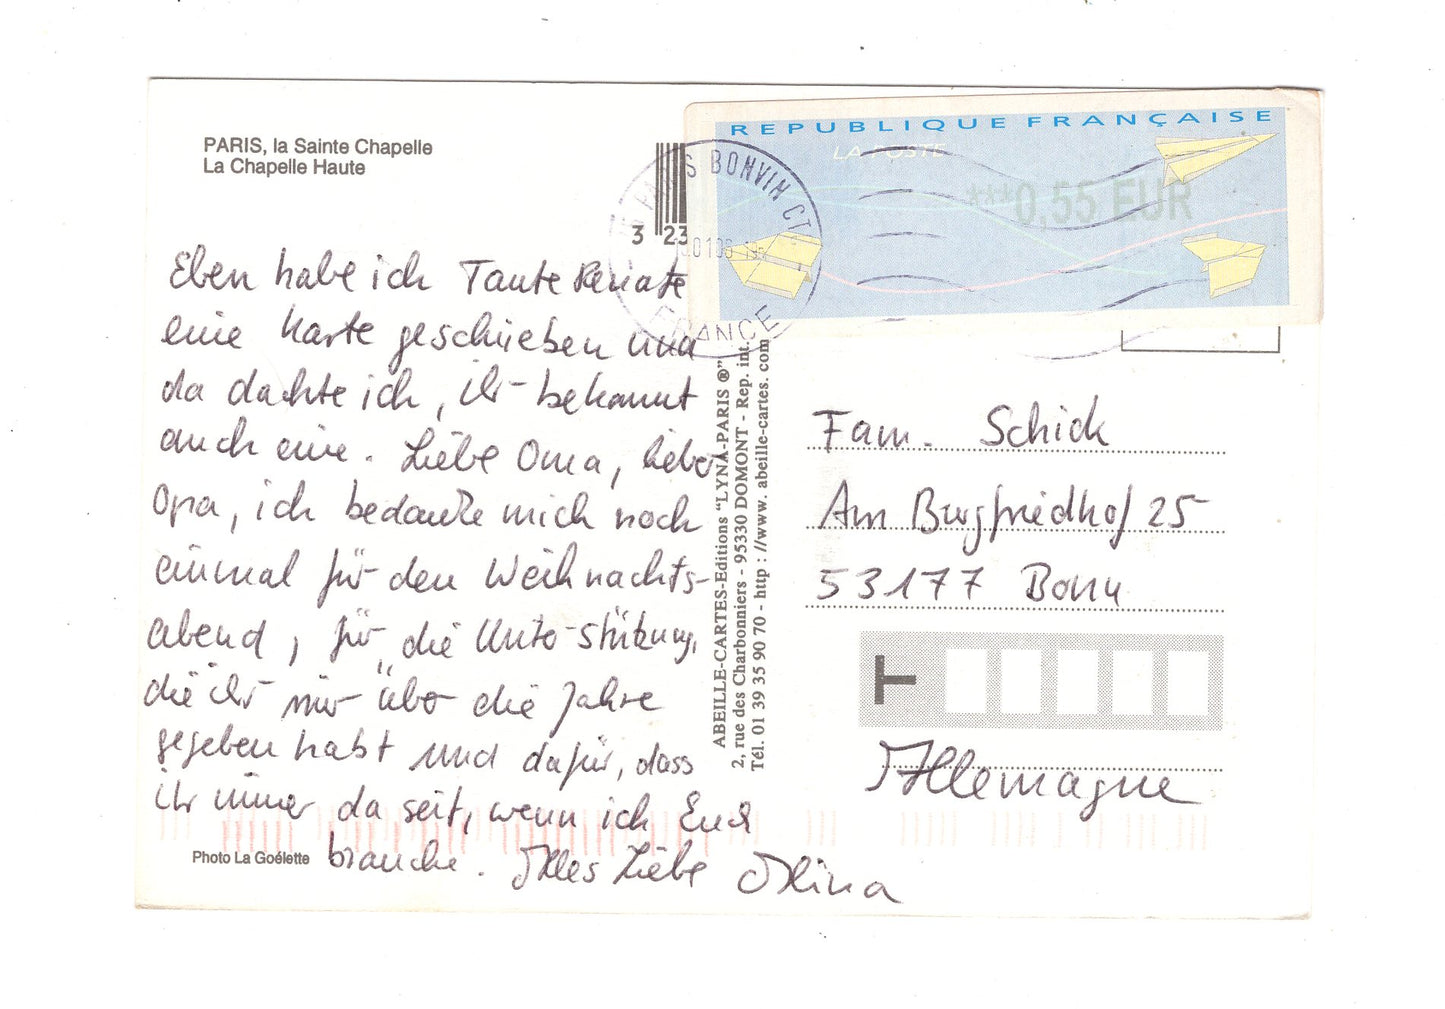 PARIS, la Sainte Chapelle
La Chapelle Haute
REPUBLIQUE FRANÇAISE
LA POSTE
***0,55 EUR
PARIS BONVIN CT
FRANCE
3 23
Eben habe ich Tante Renate
eine Karte geschrieben und
da dachte ich, ihr bekommt
auch eine. Liebe Oma, lieber
Opa, ich bedanke mich noch
einmal für den Weihnachts-
abend, für die Unterstützung,
die ihr mir über die Jahre
gegeben habt und dafür, dass
ihr immer da seit, wenn ich Euch
brauche. Alles Liebe Alina
Photo La Goélette
ABEILLE-CARTES-Editions "LYNA-PARIS ®"
2, rue des Charbonniers - 95330 DOMONT - Rep. int.
Tél. 01 39 35 90 70 - http : //www. abeille-cartes. com
Fam. Schick
Am Burgfriedhof 25
53177 Bonn
Allemagne